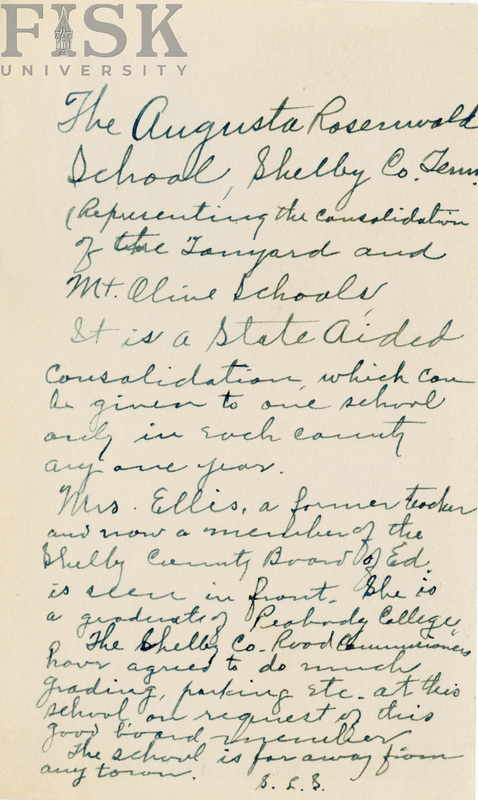 FISK
UNIVERSITY
The Augusta Rosenwald
School, Shelby Co. Tenn.
(Representing the consolidation
of the Tanyard and
Mt. Olive Schools,
It is a State Aided
Consolidation, which can
be given to one school
only in each county
any one year.
Mrs. Ellis, a former teacher
and now a member of the
Shelby County Board of Ed.
is seen in front. She is
a graduate of Peabody College,
The Shelby Co. Road Commissioners
have agreed to do much
grading, parking etc. at this
school on request of this
good board member
The school is far away from
any town. S. L. S.